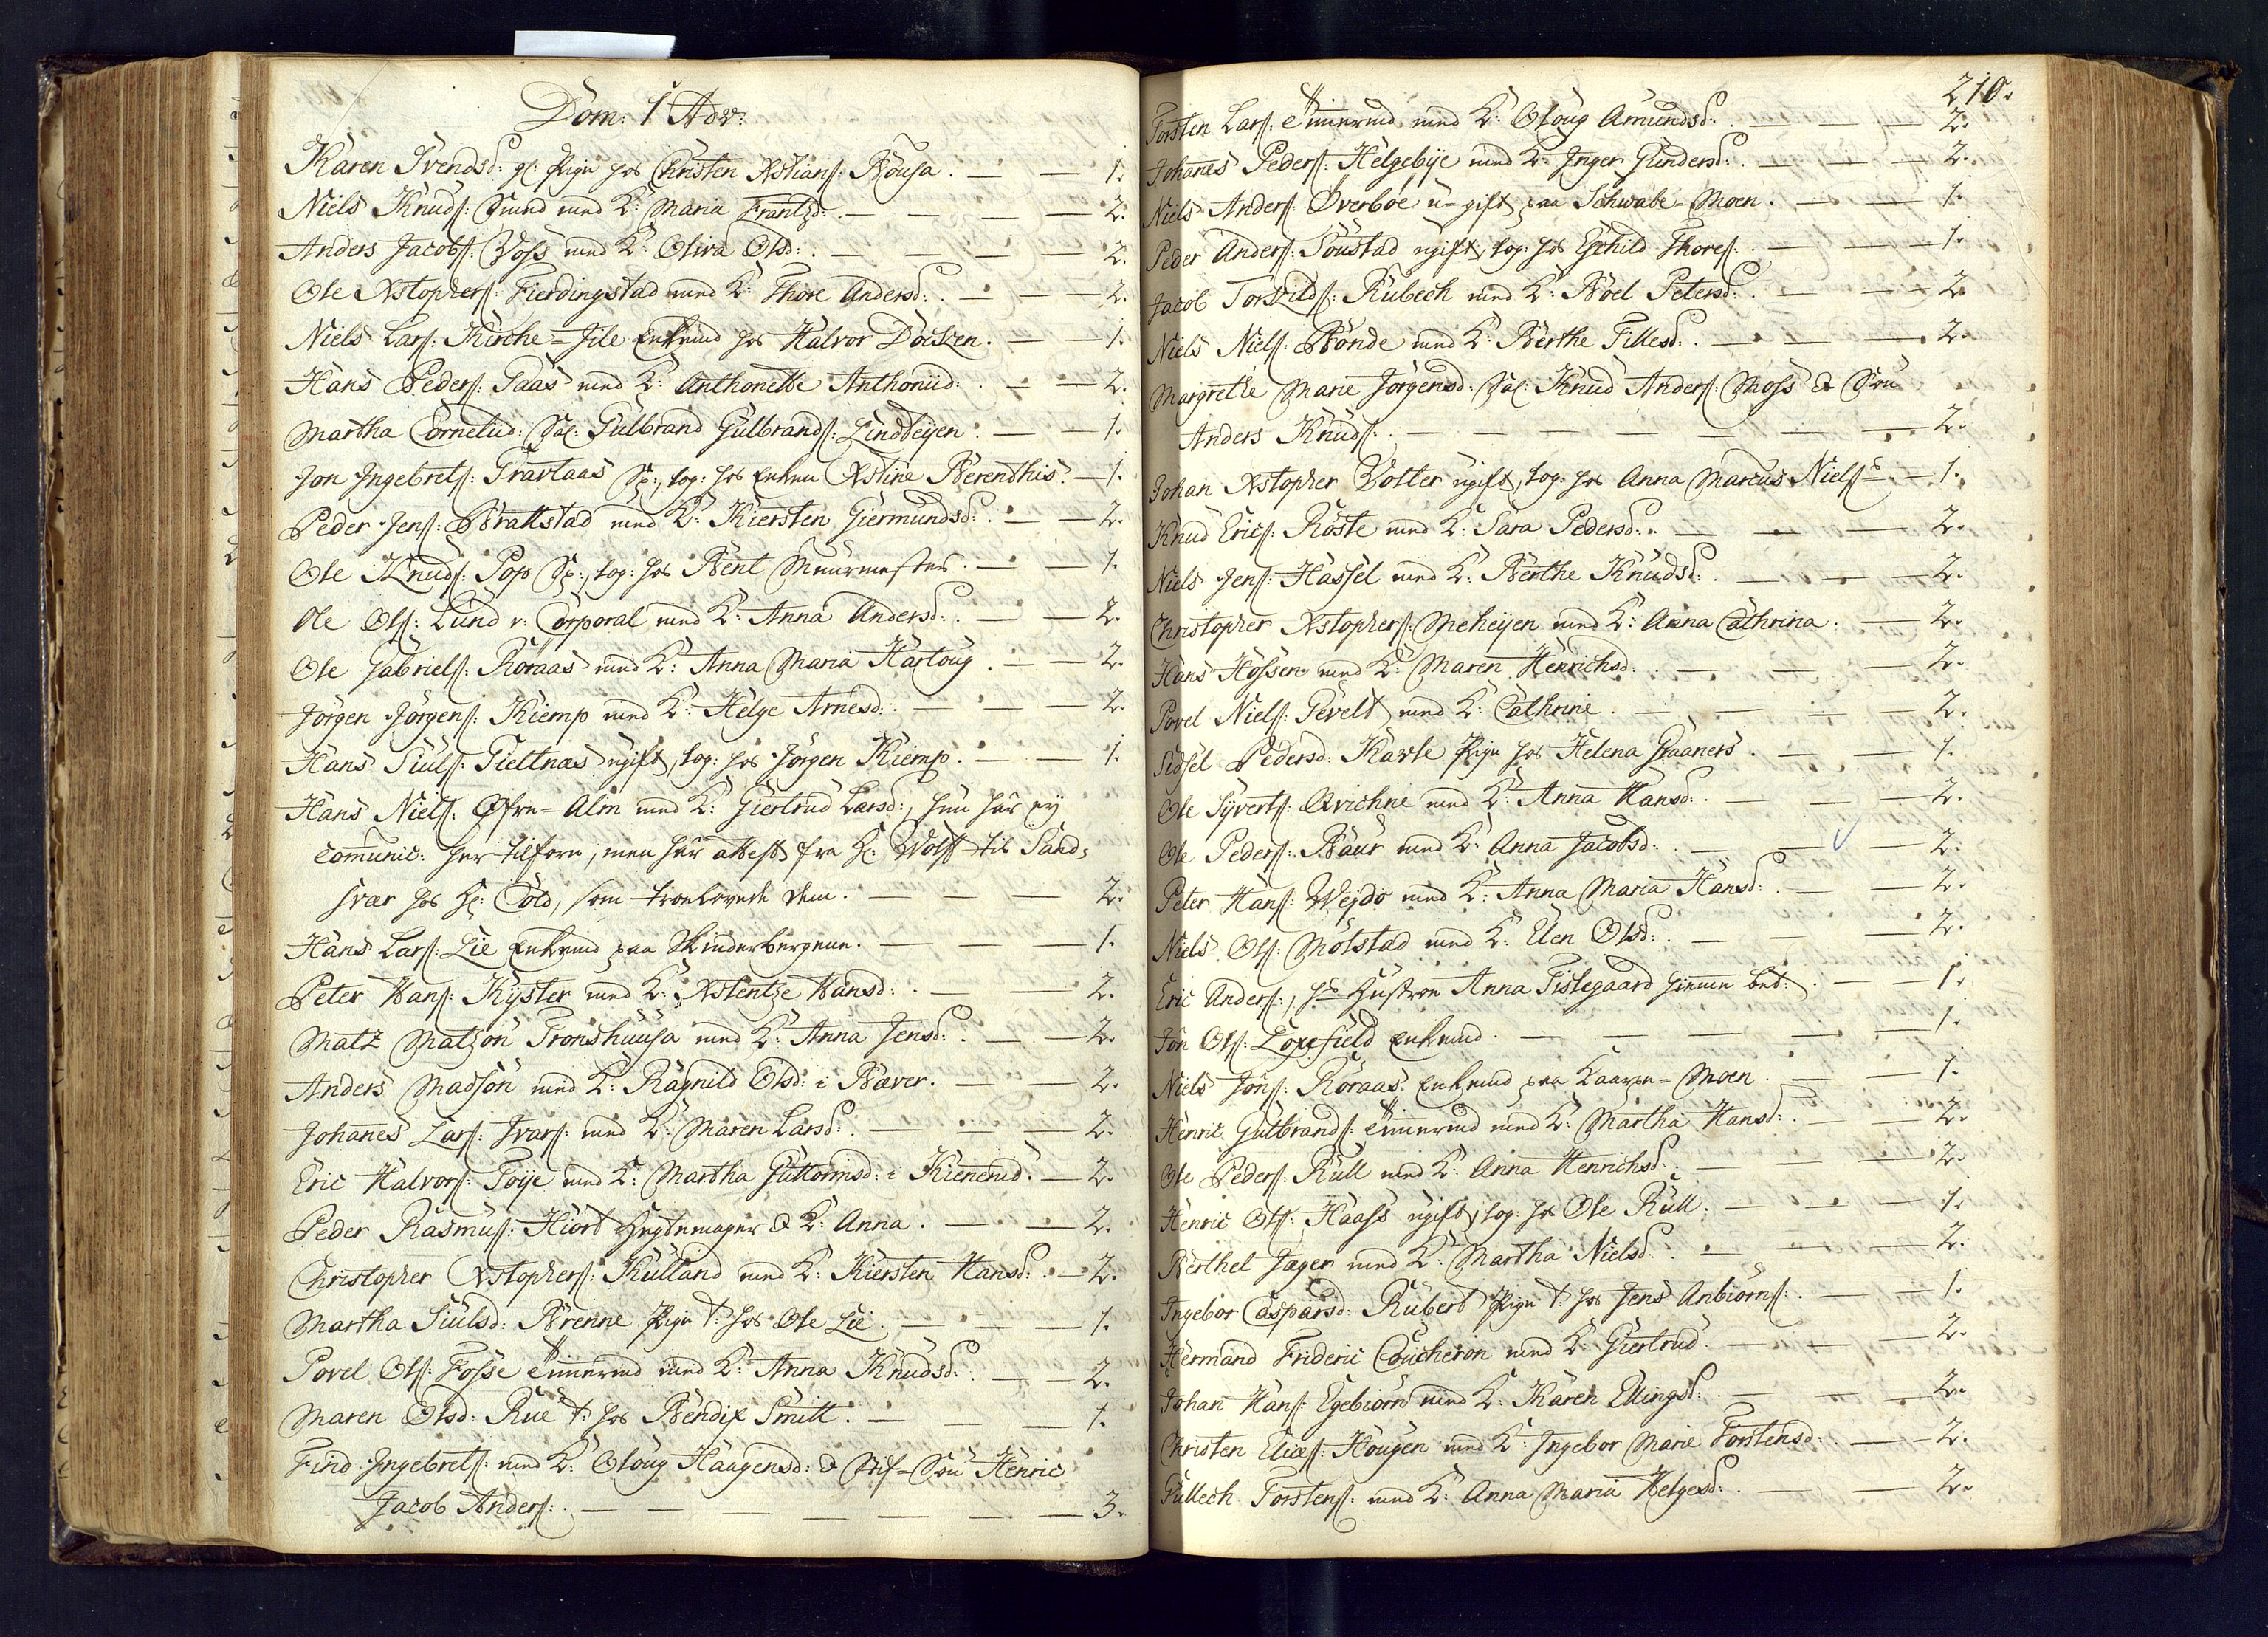 Dom: 1 Adv:
Karen Svendsd: gl: Pige hos Christen Xstians: Kousa. — — 1.
Niels Knuds: Smed med K: Maria Frantzd: — — — 2.
Anders Jacobs: Voss med K: Oliva Olsd: — — — 2.
Ole Xstophers: Fierdingstad med K: Thore Andersd: — — 2.
Niels Lars: Kirche=Jile Enkemd hos Halvor Döcken. — 1.
Hans Peders: Saas med K: Anthonette Anthoniid: — — 2.
Martha Corneliid: Sal: Gulbrand Gulbrands: Lindteyen. — 1.
Jon Ingebrets: Travlaas Sp:, log: hos Enken Xstine Berenthis: — 1.
Peder Jens: Brattstad med K: Kiersten Giermundsd: — 2.
Ole Knuds: Pop Sp:, log: hos Bent Muurmester. — 1.
Ole Ols: Lund v: Corporal med K: Anna Andersd: — 2.
Ole Gabriels: Röraas med K: Anna Maria Hartoug. — 2.
Jörgen Jörgens: Kiemp med K: Helge Arnesd: — — 2.
Hans Siuls: Tieltnæs ugift, log: hos Jörgen Kiemp. — — 1.
Hans Niels: Øfre=Alm med K: Giertrud Larsd:, hun har ey
Comunic: her tilforn, men har attest fra Hr: Wolff til Sands
svær hos Hr: Cold, som troelovede dem. — — — 2.
Hans Lars: Lie Enkemd paa Skinderbergene. — — 1.
Peter Hans: Kyster med K: Xstentze Hansd: — — 2.
Matz Matzön Tronshuusa med K: Anna Jensd: — — 2.
Anders Madsön med K: Ragnild Olsd: i Bæver. — — 2.
Johannes Lars: Ivars: med K: Maren Larsd: — — 2.
Eric Halvors: Toye med K: Martha Guttormsd: i Kienerud. — 2.
Peder Rasmus: Hiort Hegtemager & K: Anna. — — 2.
Christopher Xstophers: Kulland med K: Kiersten Hansd: — 2.
Martha Siulsd: Brenne Pige t: hos Ole Lie. — — 1.
Povel Ols: Fosse Timermd med K: Anna Knudsd: — — 2.
Maren Olsd: Rue t: hos Bendix Smitt. — — 1.
Find Ingebrets: med K: Oloug Haagensd: & Stif=Sön Henric
Jacob Anders: — — — — — — 3.
210.
Torsten Lars: Timermd med K: Oloug Amundsd: — — 2.
Johannes Peders: Helgebye med K: Inger Gundersd: — — 2.
Niels Anders: Øverböe u=gift paa Schwabe=Moen. — — 1.
Peder Anders: Soustad ugift, log: hos Eschild Thores: — — 1.
Jacob Torkilds: Rubech med K: Boel Petersd: — — 2.
Niels Niels: Bonde med K: Berthe Tillesd: — — 2.
Margrethe Marie Jörgensd: Sal: Knud Anders: Moss & Sön
Anders Knuds: — — — — — 2.
Johan Xstopher Votter ugift, log: hos Anna Marcus Niels: — 1.
Knud Erics: Röste med K: Sara Pedersd: — — 2.
Niels Jens: Hassel med K: Berthe Knudsd: — — 2.
Christopher Xstophers: Meheyen med K: Anna Cathrina. — 2.
Hans Hossen med K: Maren Henrichsd: — — 2.
Povel Niels: Gevelt med K: Cathrine. — — — 2.
Sidsel Pedersd: Karle Pige hos Helena Graaners. — — 1.
Ole Syverts: Qvichne med K: Anna Hansd: — — 2.
Ole Peders: Baur med K: Anna Jacobsd: — — 2.
Peter Hans: Weydo med K: Anna Maria Hansd: — — 2.
Niels Ols: Molstad med K: Elen Olsd: — — 2.
Eric Anders:, hs Hustroe Anna Fislegaard hieme bet: — — 1.
Jon Ols: Loxefield Enkemd. — — — 1.
Niels Jons: Röraas Enkemd paa Kaarpe=Moen. — — 1.
Henric Gulbrands: Timermd med K: Martha Hansd: — — 2.
Ole Peders: Rull med K: Anna Henrichsd: — — 2.
Henric Ols: Haass ugift, log: hos Ole Rull. — — 1.
Berthel Jæger med K: Martha Nielsd: — — 2.
Ingebor Caspersd: Rubert Pige t: hos Jens Anbiörns: — — 1.
Hermand Frideric Coucheron med K: Giertrud. — — 2.
Johan Hans: Egebiörn med K: Karen Ellingsd: — — 2.
Christen Elies: Hougen med K: Ingebor Marie Torstensd: — 2.
Gullech Torstens: med K: Anna Maria Helgesd: — — 2.